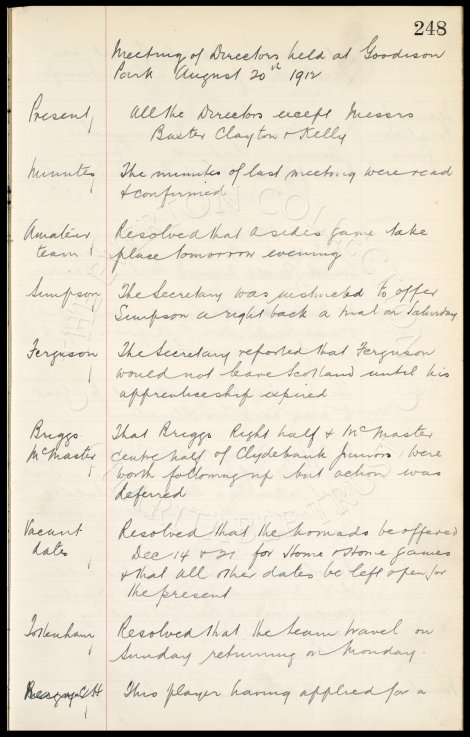 248
Meeting of Directors held at Goodison
Park August 20th 1912
Present All the Directors except Messrs
Baxter Clayton & Kelly
Minutes The minutes of last meeting were read
& confirmed
Amateur Resolved that a sides game take
team place tomorrow evening
Simpson The Secretary was instructed to offer
Simpson a right back a trial on Saturday
Ferguson The Secretary reported that Ferguson
would not leave Scotland until his
apprenticeship expired
Briggs That Briggs Right half & McMaster
McMaster centre half of Clydebank Juniors were
worth following up but action was
deferred
Vacant Resolved that the Nomads be offered
dates Dec 14 & 21 for Home & Home games
& that all other dates be left open for
the present
Tottenham Resolved that the team travel on
Sunday returning on Monday.
This player having applied for a
EVERTON COLLECTION